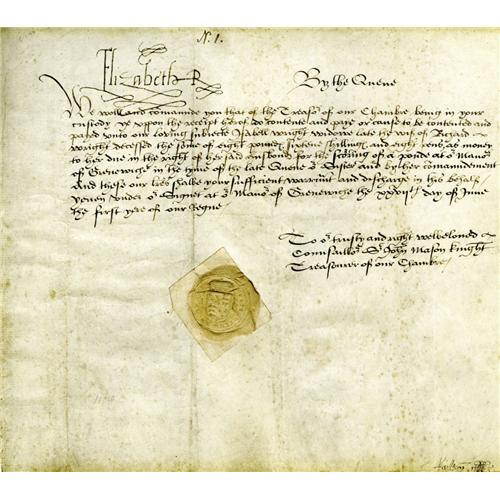 N. 1.
Elizabeth R
By the Quene
We woll and comaunde you that of the Treasr. of our Chambre being in your
custody ye upon the receipt herof do contente and paye or cause to be contented and
paied unto our loving subiecte Isabell wright widowe late the wif of Richard
wright decessed the some of eight poundes sixtene shillinges and eight pens as money
to her due in the right of her said husbond for the storing of a ponde at or Manor
of Grenewiche in the tyme of the late Quene or Sister and by her comaundement
And these our lres shalbe your sufficient warrant and discharge in this behalf
yeven under or Signet at or Manor of Grenewiche the xxviijth day of June
the first yere of our Reigne
To or trusty and right welbeloved
Counsaillor Sr John Mason knight
Treasourer of our Chambre